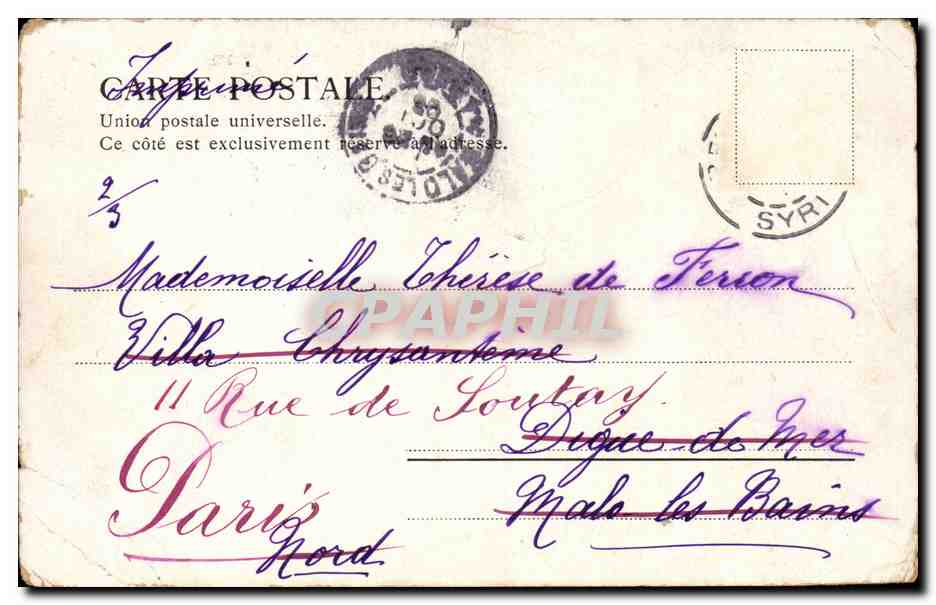 CARTE POSTALE.
Imprimé
Union postale universelle.
Ce côté est exclusivement réservé à l'adresse.
MALO LES
SYRI
2/3
Mademoiselle Thérèse de Ferson
CPAPHIL
Villa Chrysantème
11 Rue de Loutay.
Digue de Mer
Paris
Malo les Bains
Nord